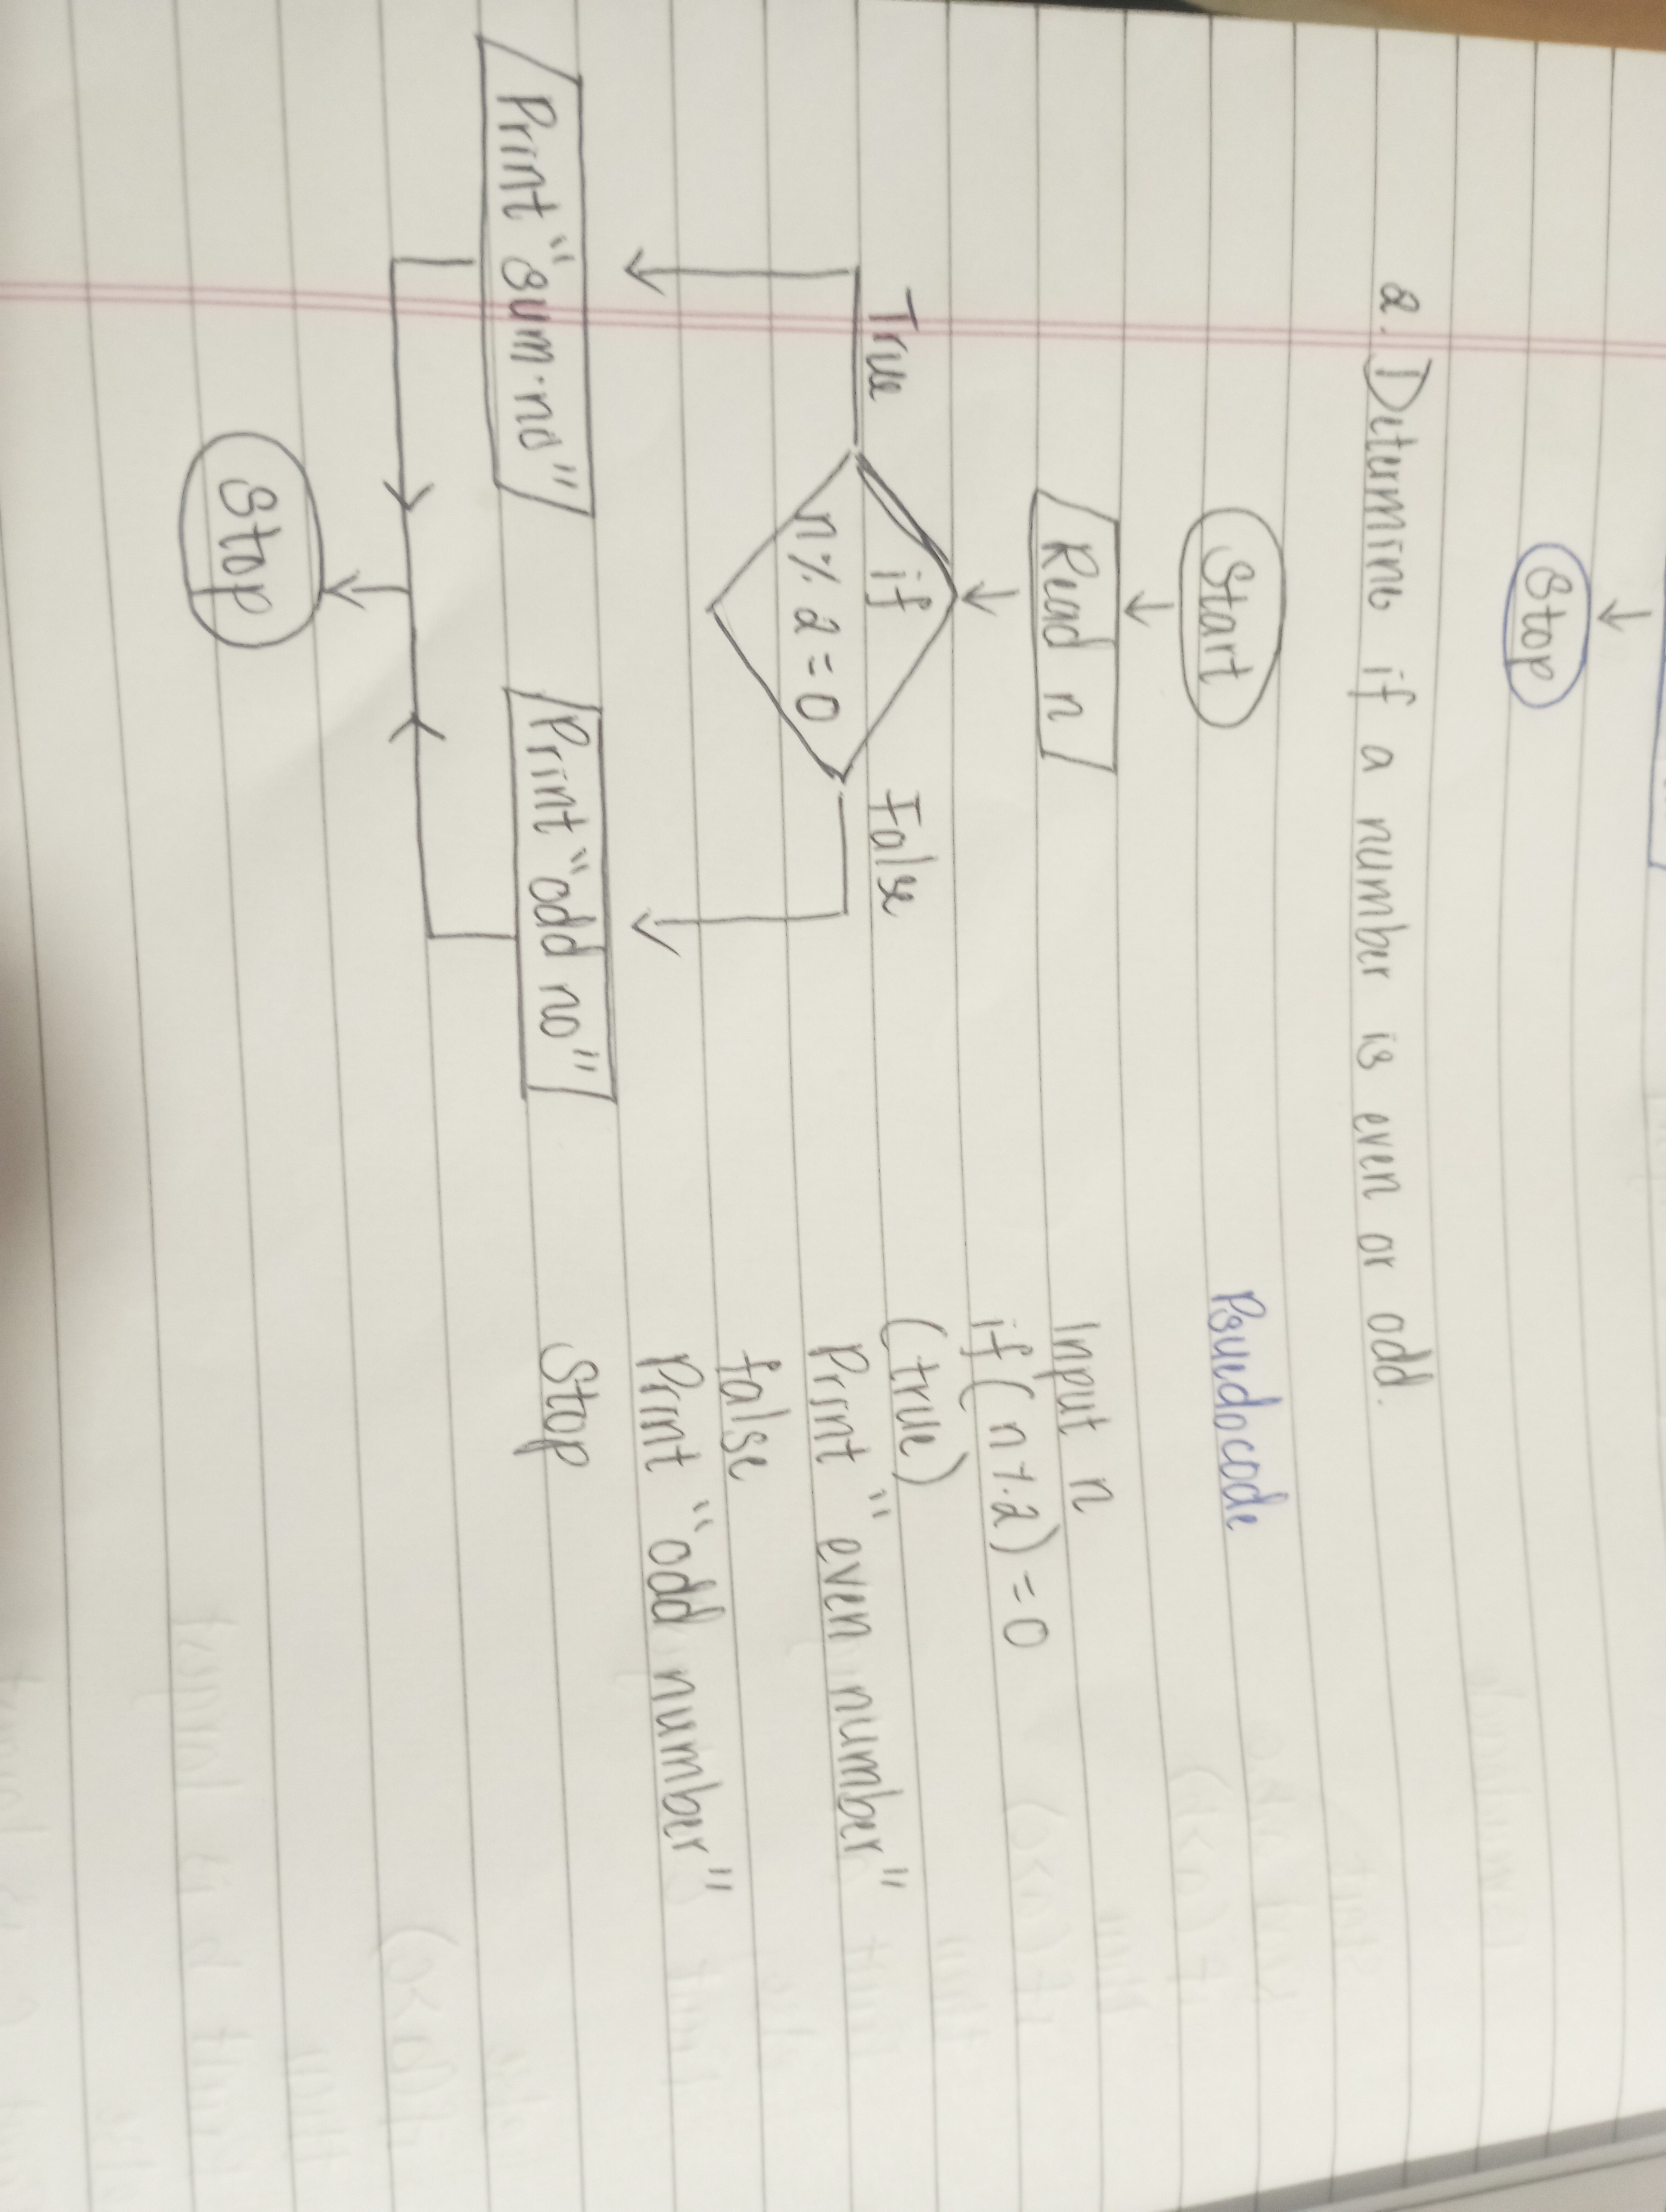 Stop
2. Determine if a number is even or odd.
Start
Read n
if
n % 2 = 0
True
False
Print "sum·no"
Print "odd no"
Stop
Psuedocode
Input n
if ( n % 2 ) = 0
( true )
Print "even number"
false
Print "odd number"
Stop